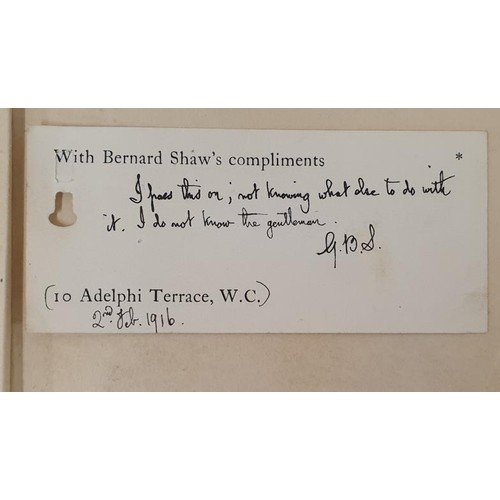 With Bernard Shaw's compliments *
I pass this on; not knowing what else to do with
it. I do not know the gentleman.
G.B.S.
(10 Adelphi Terrace, W.C.)
2nd Feb. 1916.